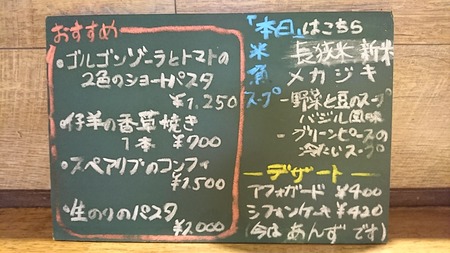 おすすめ
・ゴルゴンゾーラとトマトの
2色のショートパスタ
¥1,250
・仔羊の香草焼き
1本 ¥700
・スペアリブのコンフィ
¥1,500
・生のりのパスタ
¥1,000
「本日」はこちら
米 長狭米 新米
魚 メカジキ
スープ -野菜と豆のスープ
バジル風味
-グリーンピースの
冷たいスープ
ーデザートー
アフォガード ¥400
シフォンケーキ ¥420
(今は あんず です)